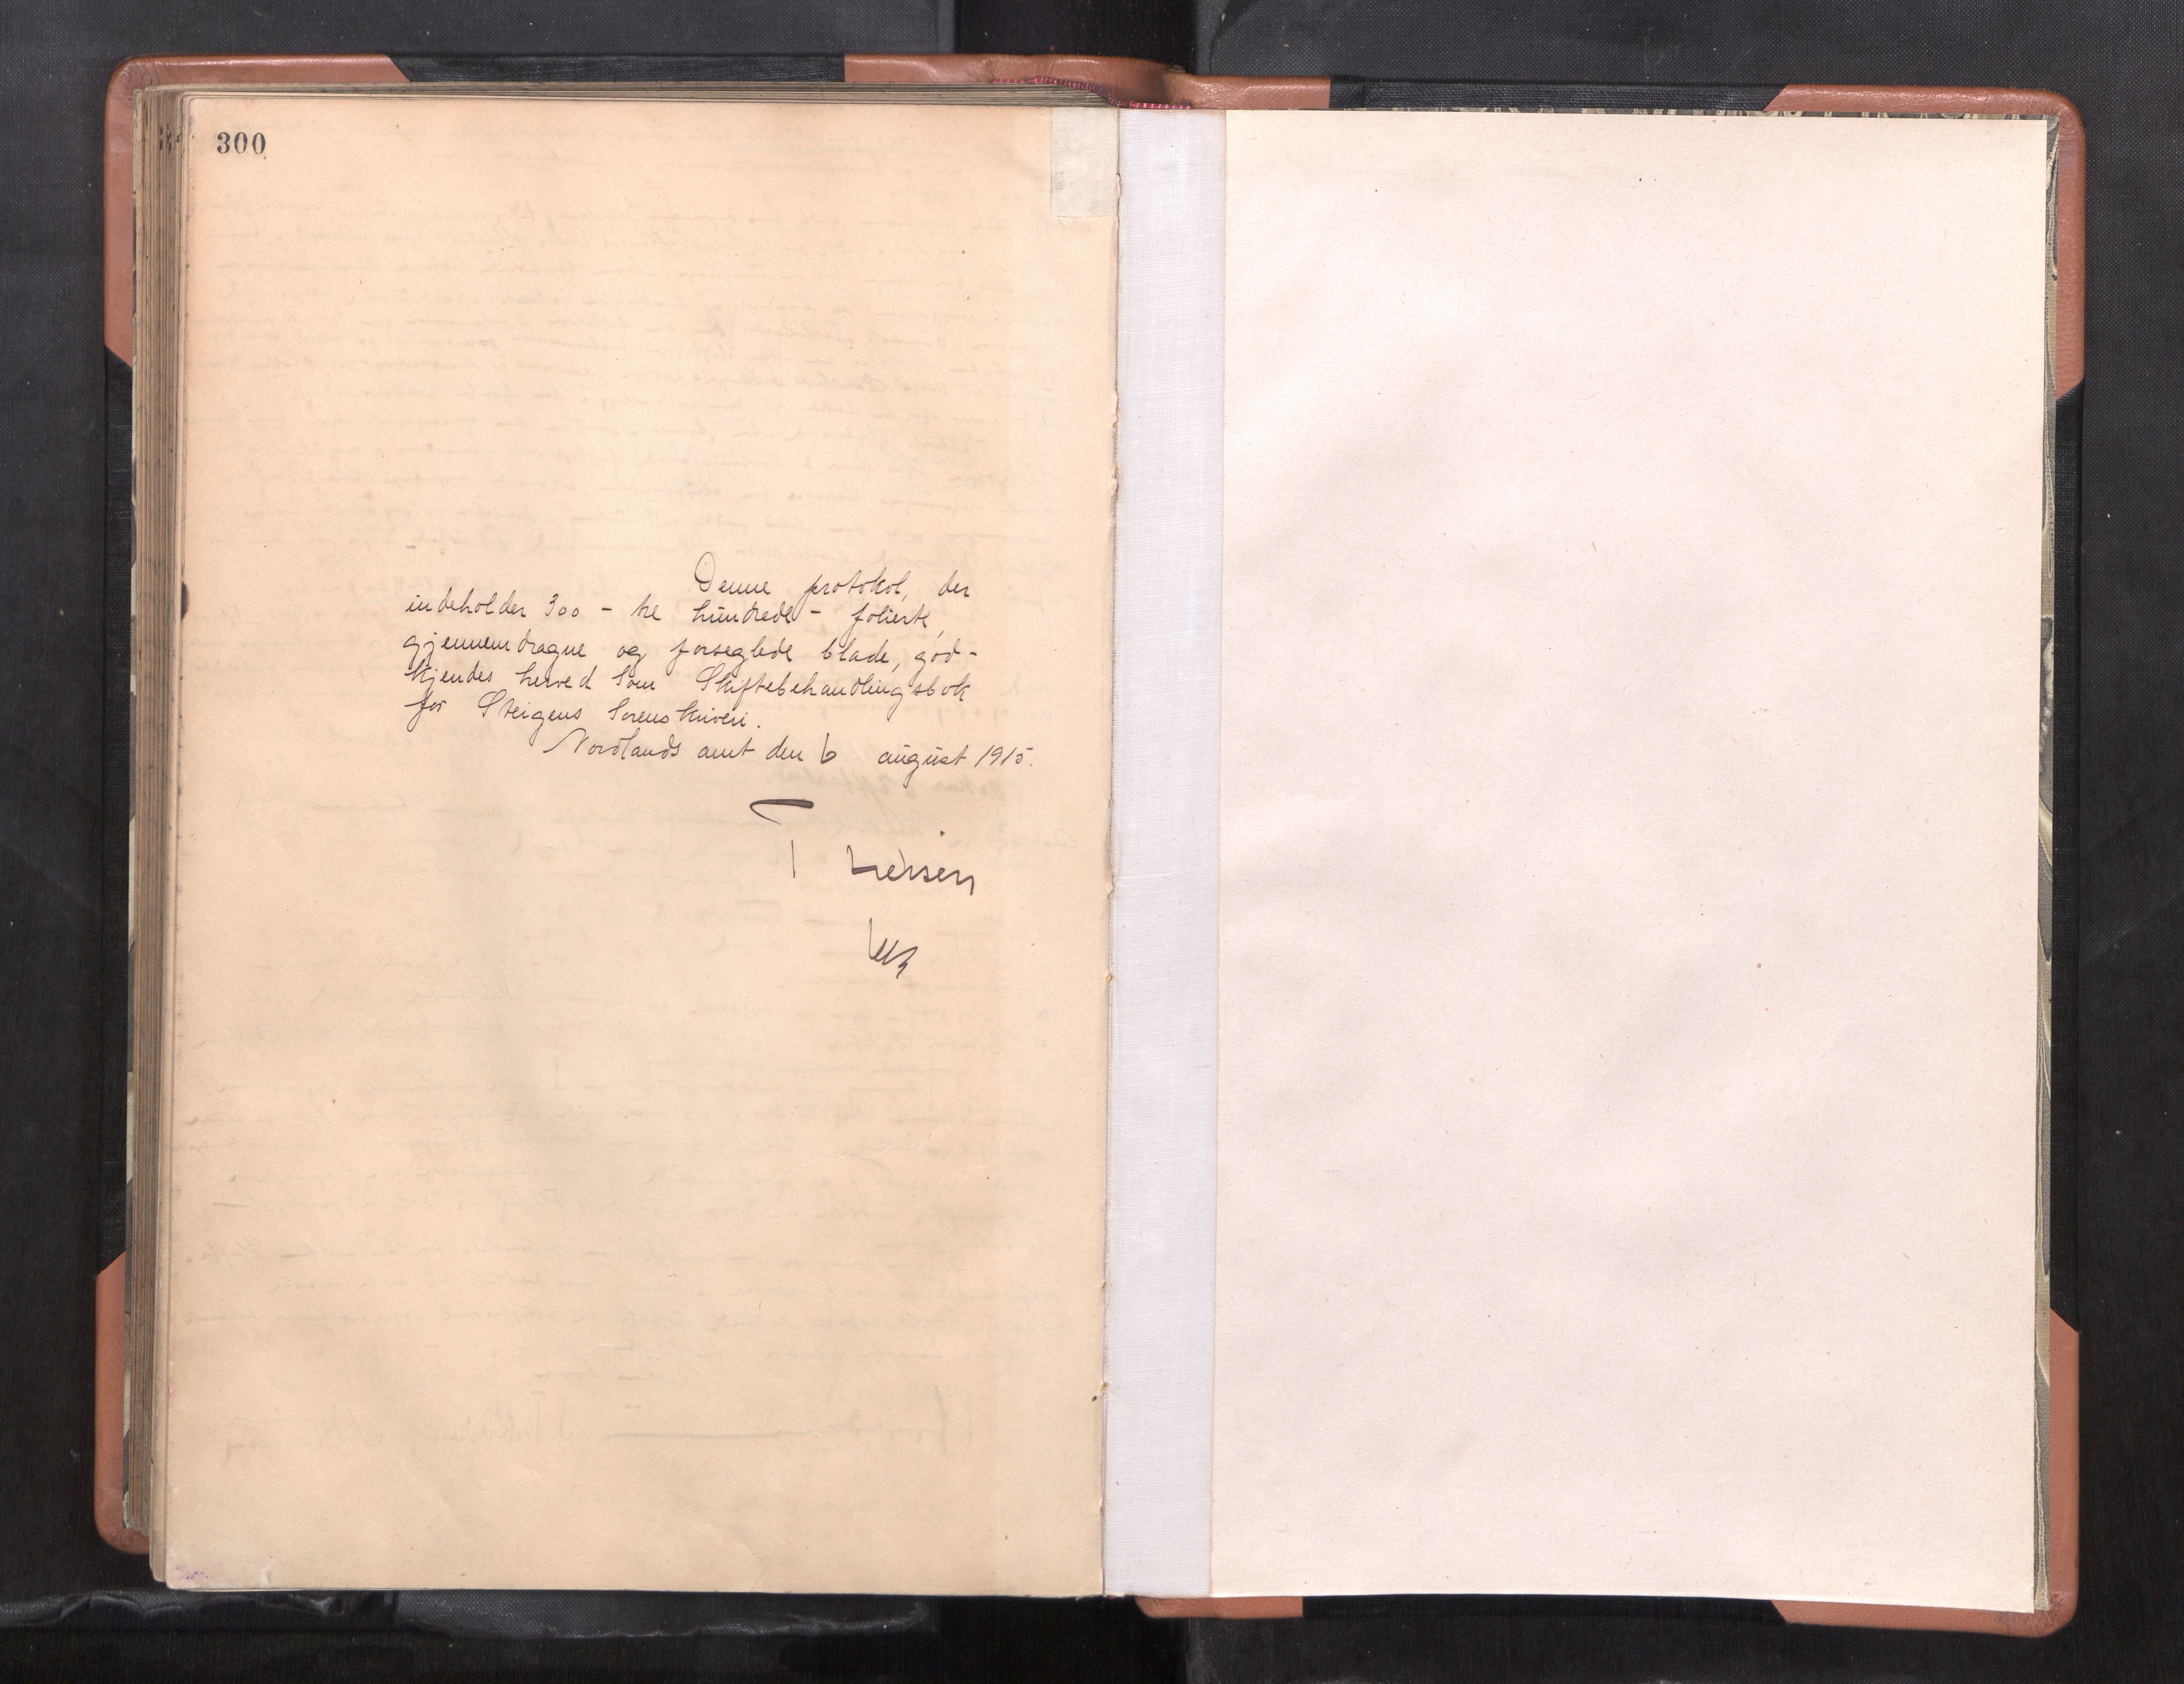 300
Denne protokol, der
indeholder 300 - tre hundrede - folierte,
gjennemdragne og forseglede blade, god-
kjendes herved som Skiftebehandlingsbok
for Steigens sorenskriveri.
Nordlands amt den 6 august 1915.